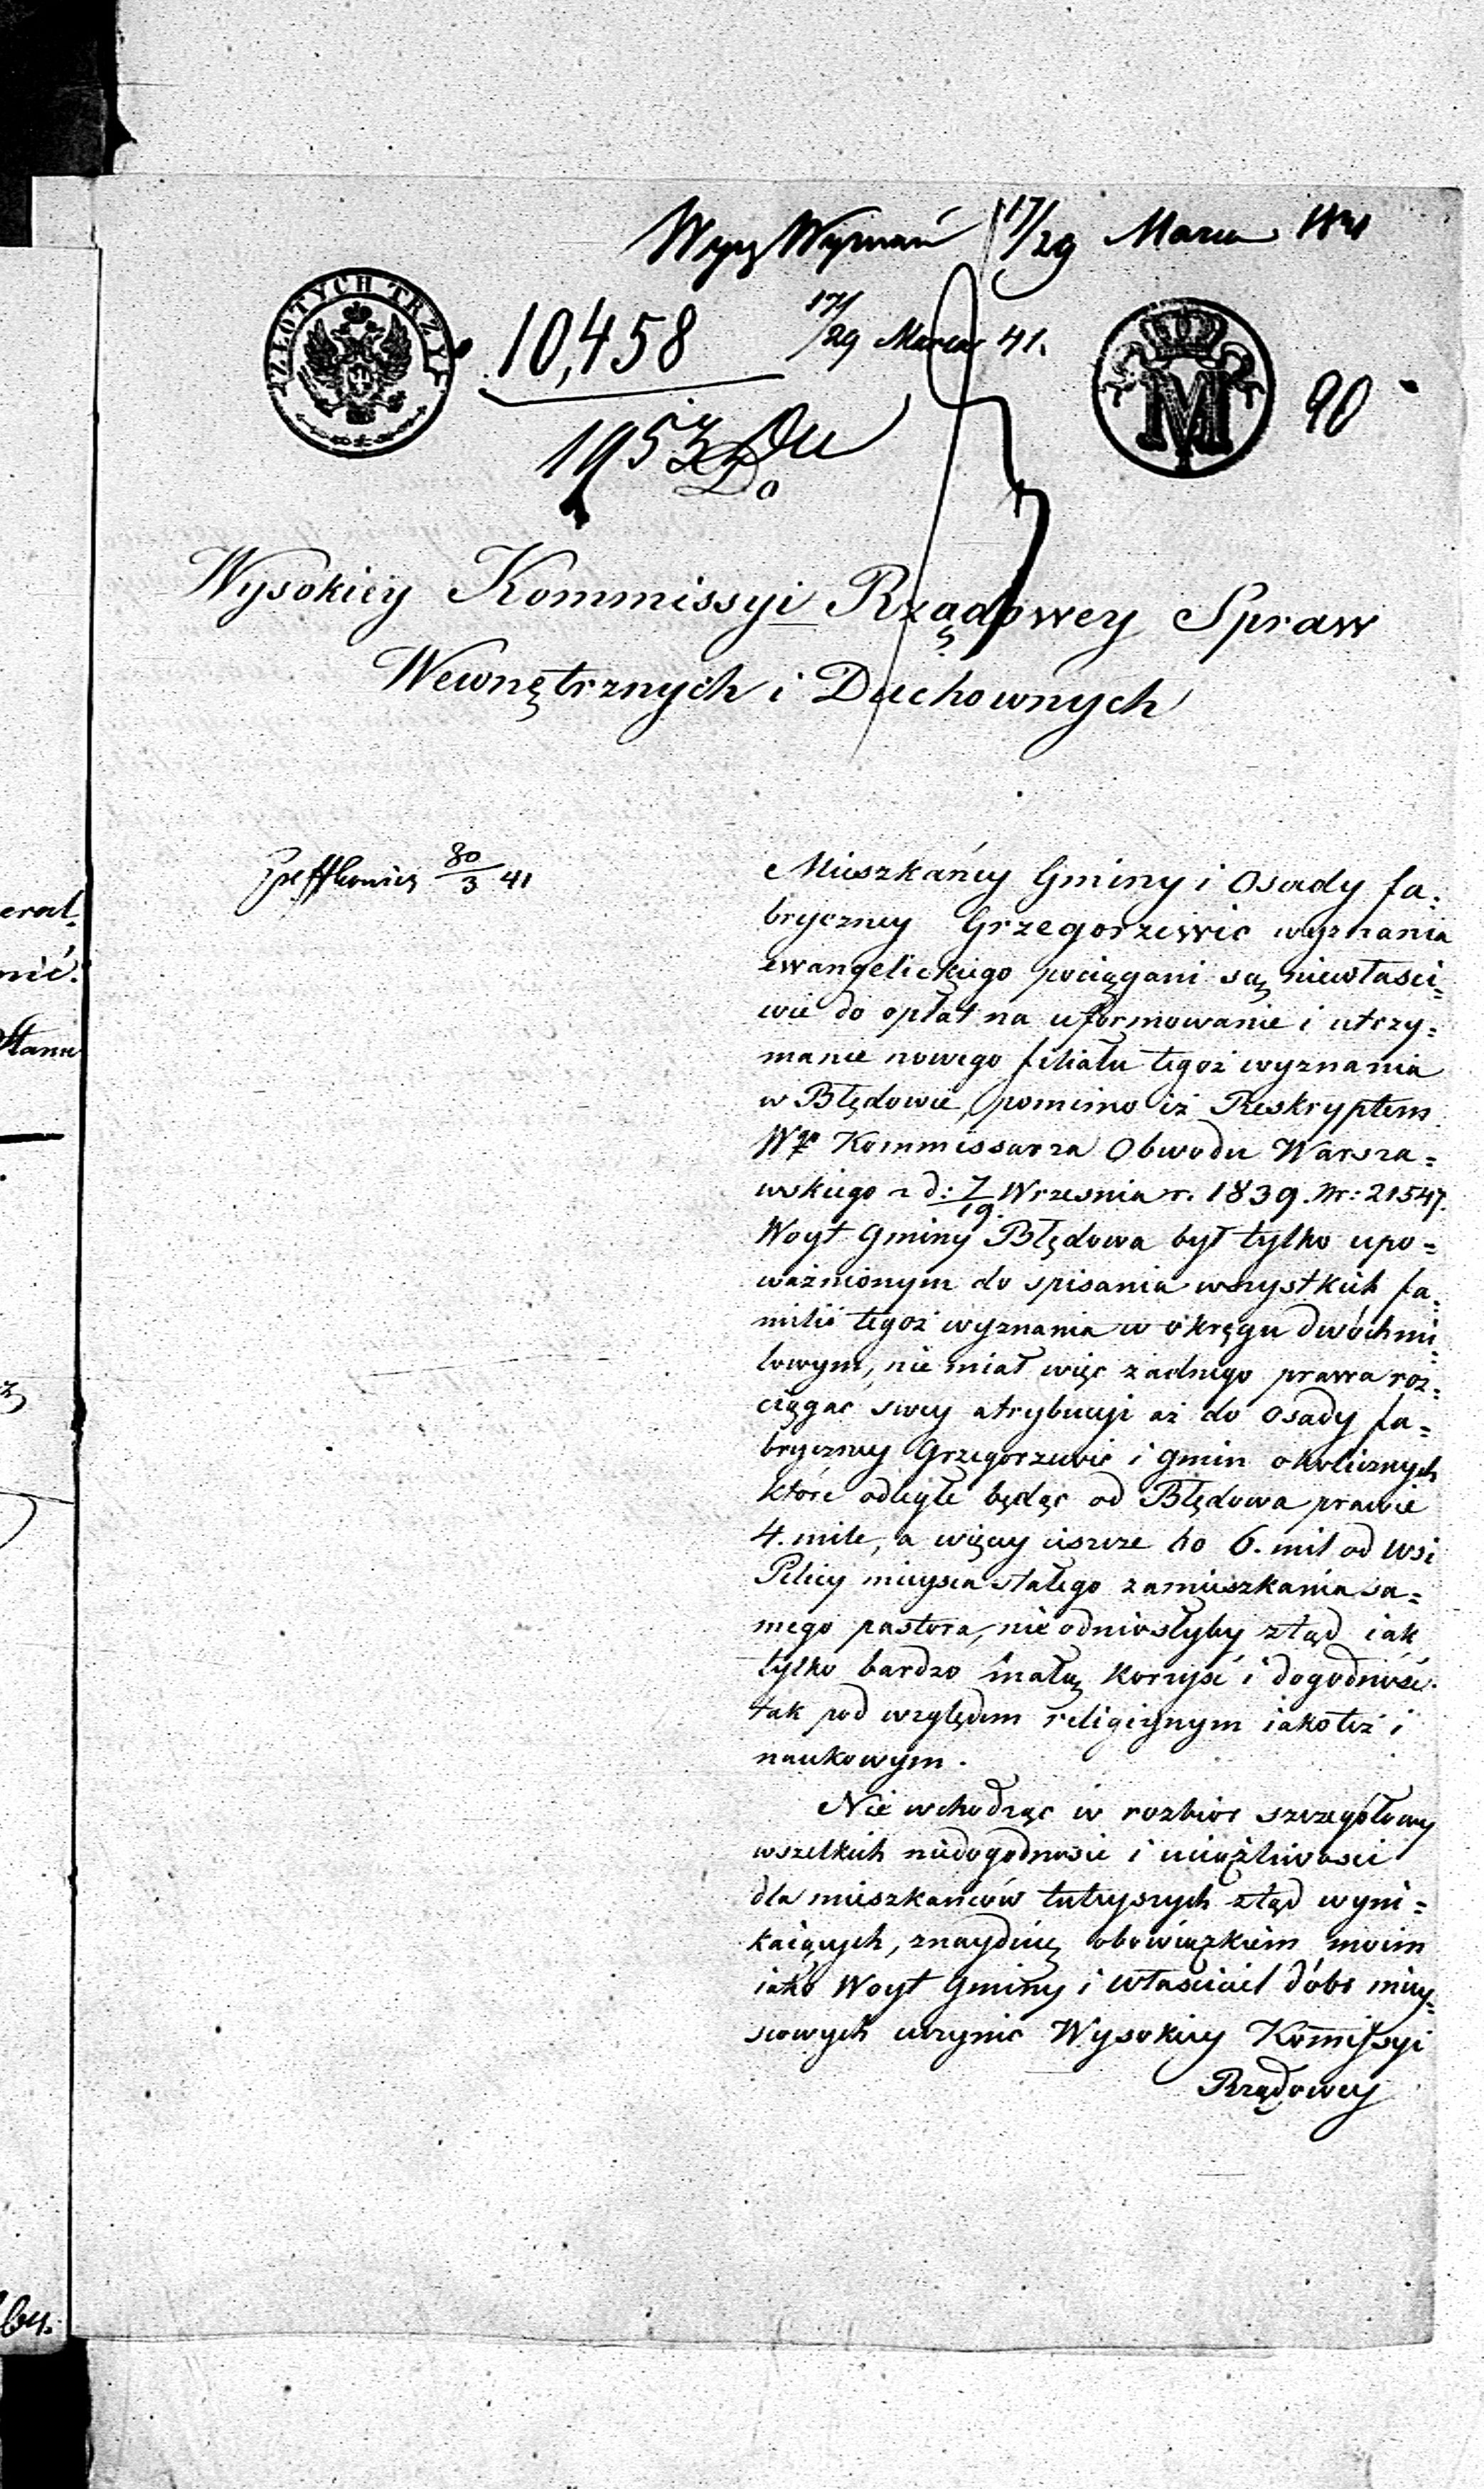 Wyz Wyznań 17/29 Marca 1841
ZŁOTYCH TRZY
10,458 17/29 Marca 41.
M
90
1953
Do
Wysokiey Kommissyi Rządowey Spraw
Wewnętrznych i Duchownych
30/3 41
Mieszkańcy Gminy i Osady fa=
bryczney Grzegorzewic wyznania
ewangelickiego pociągani są niewłaści=
wie do opłat na uformowanie i utrzy=
manie nowego filiału tegoż wyznania
w Błędowie, pomimo iż Reskryptem
Wgo Kommissarza Obwodu Warsza=
wskiego z d: 7/19. Wrzesnia r. 1839. Nr: 21547.
Woyt Gminy Błędowa był tylko upo=
ważnionym do spisania wszystkich fa=
milii tegoż wyznania w okręgu dwóchmi=
lowym, nie miał więc żadnego prawa roz=
ciągac swey atrybucyi aż do Osady fa=
bryczney Grzegorzewic i gmin okolicznych
które odległe będąc od Błędowa prawie
4. mile, a więcey ieszcze bo 6. mil od wsi
Pelicy mieysca stałego zamieszkania sa=
mego pastora, nie odniosłyby ztąd iak
tylko bardzo małą korzyść i dogodność
tak pod względem religiynym iako też i
naukowym.
Nie wchodząc w rozbior szczegółowy
wszelkich niedogodnosci i uciążliwosci
dla mieszkanców tuteyszych ztąd wyni=
kaiących, znayduię obowiązkiem moim
iako Woyt Gminy i właściciel dóbr miey=
scowych uczynic Wysokiey Kommissyi
Rządowey